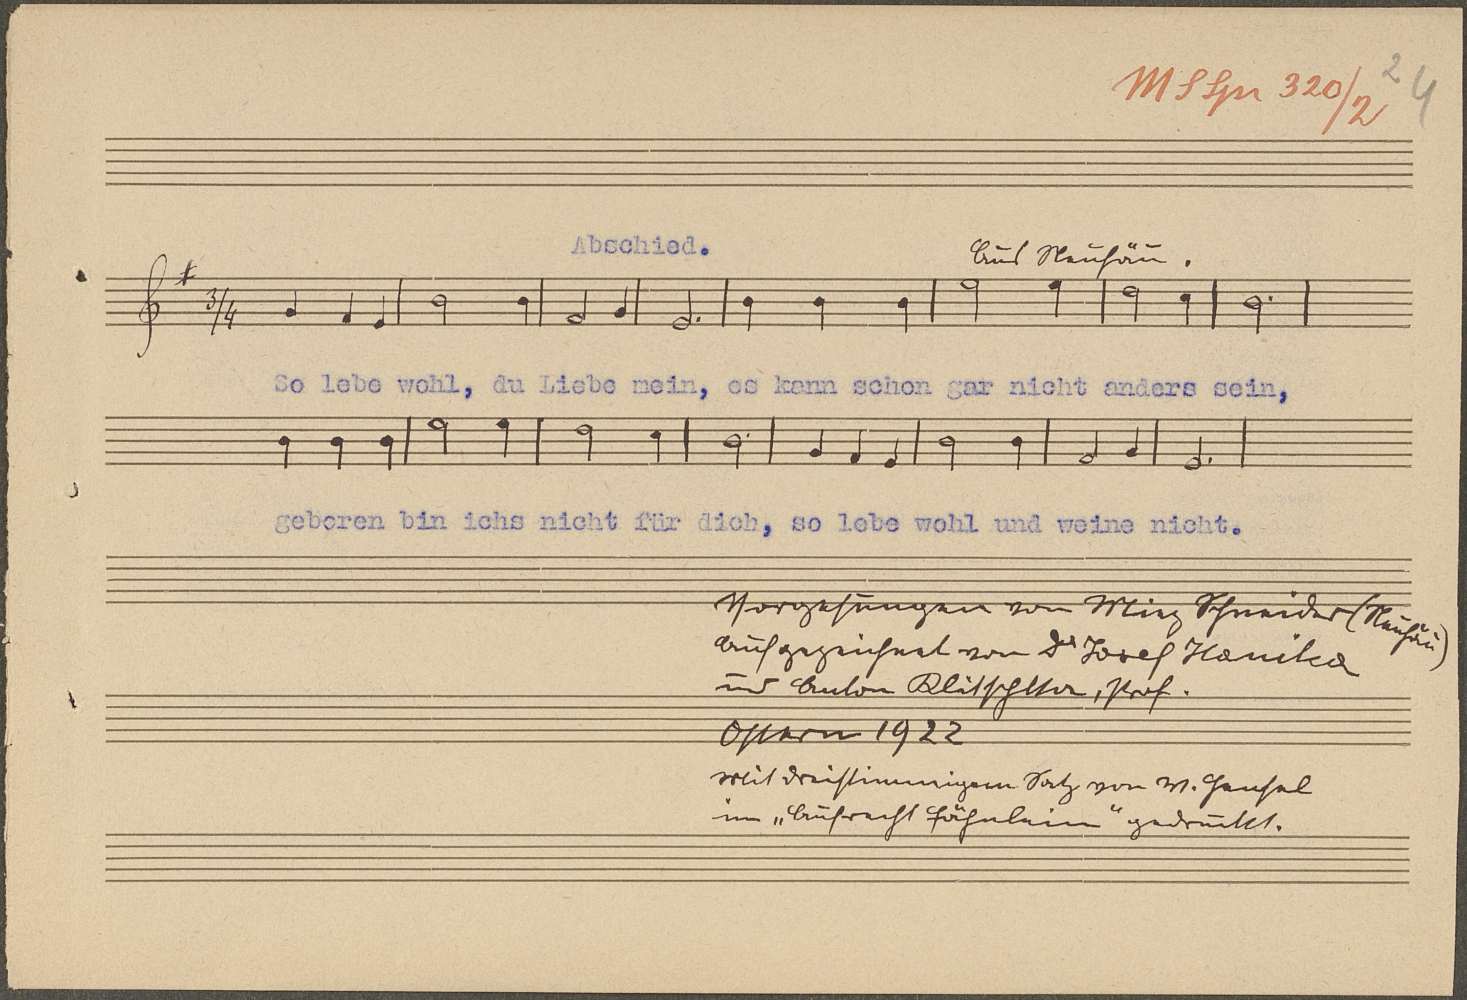 MS Spr 320/2
24
Abschied.
Aus Neuhäu.
3/4
So lebe wohl, du Liebe mein, es kann schon gar nicht anders sein,
geboren bin ichs nicht für dich, so lebe wohl und weine nicht.
Vorgesungen von Miez Schneider (Neuhäu)
aufgezeichnet von Dr Josef Hanika
und Anton Prof.
Ostern 1922
mit dreistimmigem Satz von W. Hensel
im „Aufrecht Fähnlein“ gedruckt.